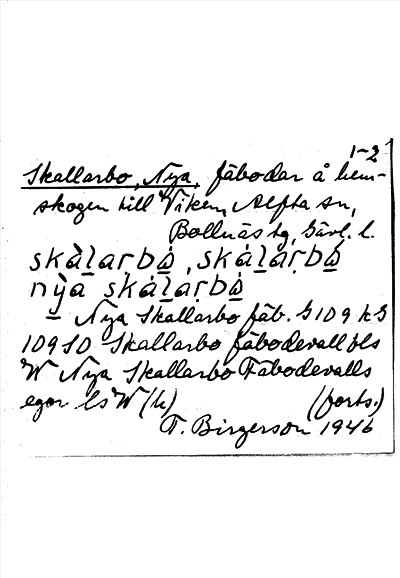 1-2
Skallarbo, Nya, fäbodar å hem-
skogen till Viken, Alfta sn,
Bollnäs tg, Gävl. l.
skàlarbó, skálarbó
nỳa skálarbó
Nya Skallarbo fäb. G 109 k G
109 SO Skallarbo fäbodevall bls
W Nya Skallarbo Fäbodevalls
egor ls W (h) (forts.)
T. Birgerson 1946